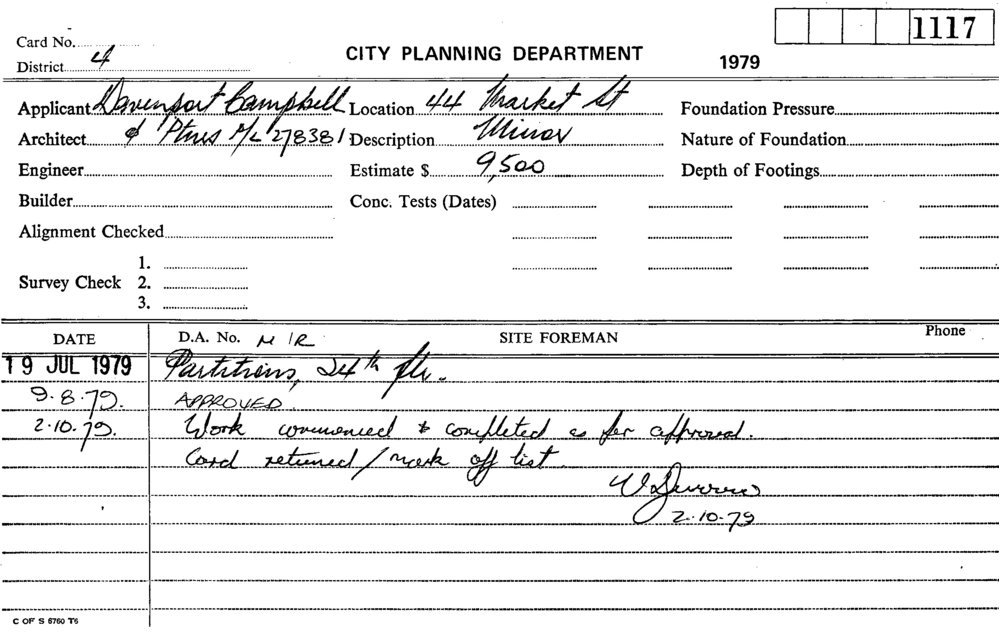 1117
Card No.
District 4
CITY PLANNING DEPARTMENT
1979
Applicant Davenport Campbell Location 44 Market St Foundation Pressure
Architect & Ptnrs P/L 278381 Description Minor Nature of Foundation
Engineer Estimate $ 9,500 Depth of Footings
Builder Conc. Tests (Dates)
Alignment Checked
1.
Survey Check 2.
3.
DATE D.A. No. M/R SITE FOREMAN Phone
19 JUL 1979 Partitions, 24th flr.
9.8.79. APPROVED.
2.10.79. Work commenced & completed as per approval.
Card returned / mark off list.
2.10.79
C OF S 6760 T6